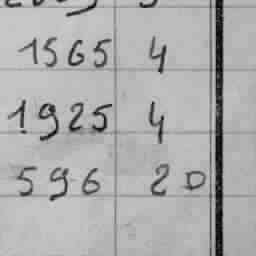 1565 4
1925 4
596 20